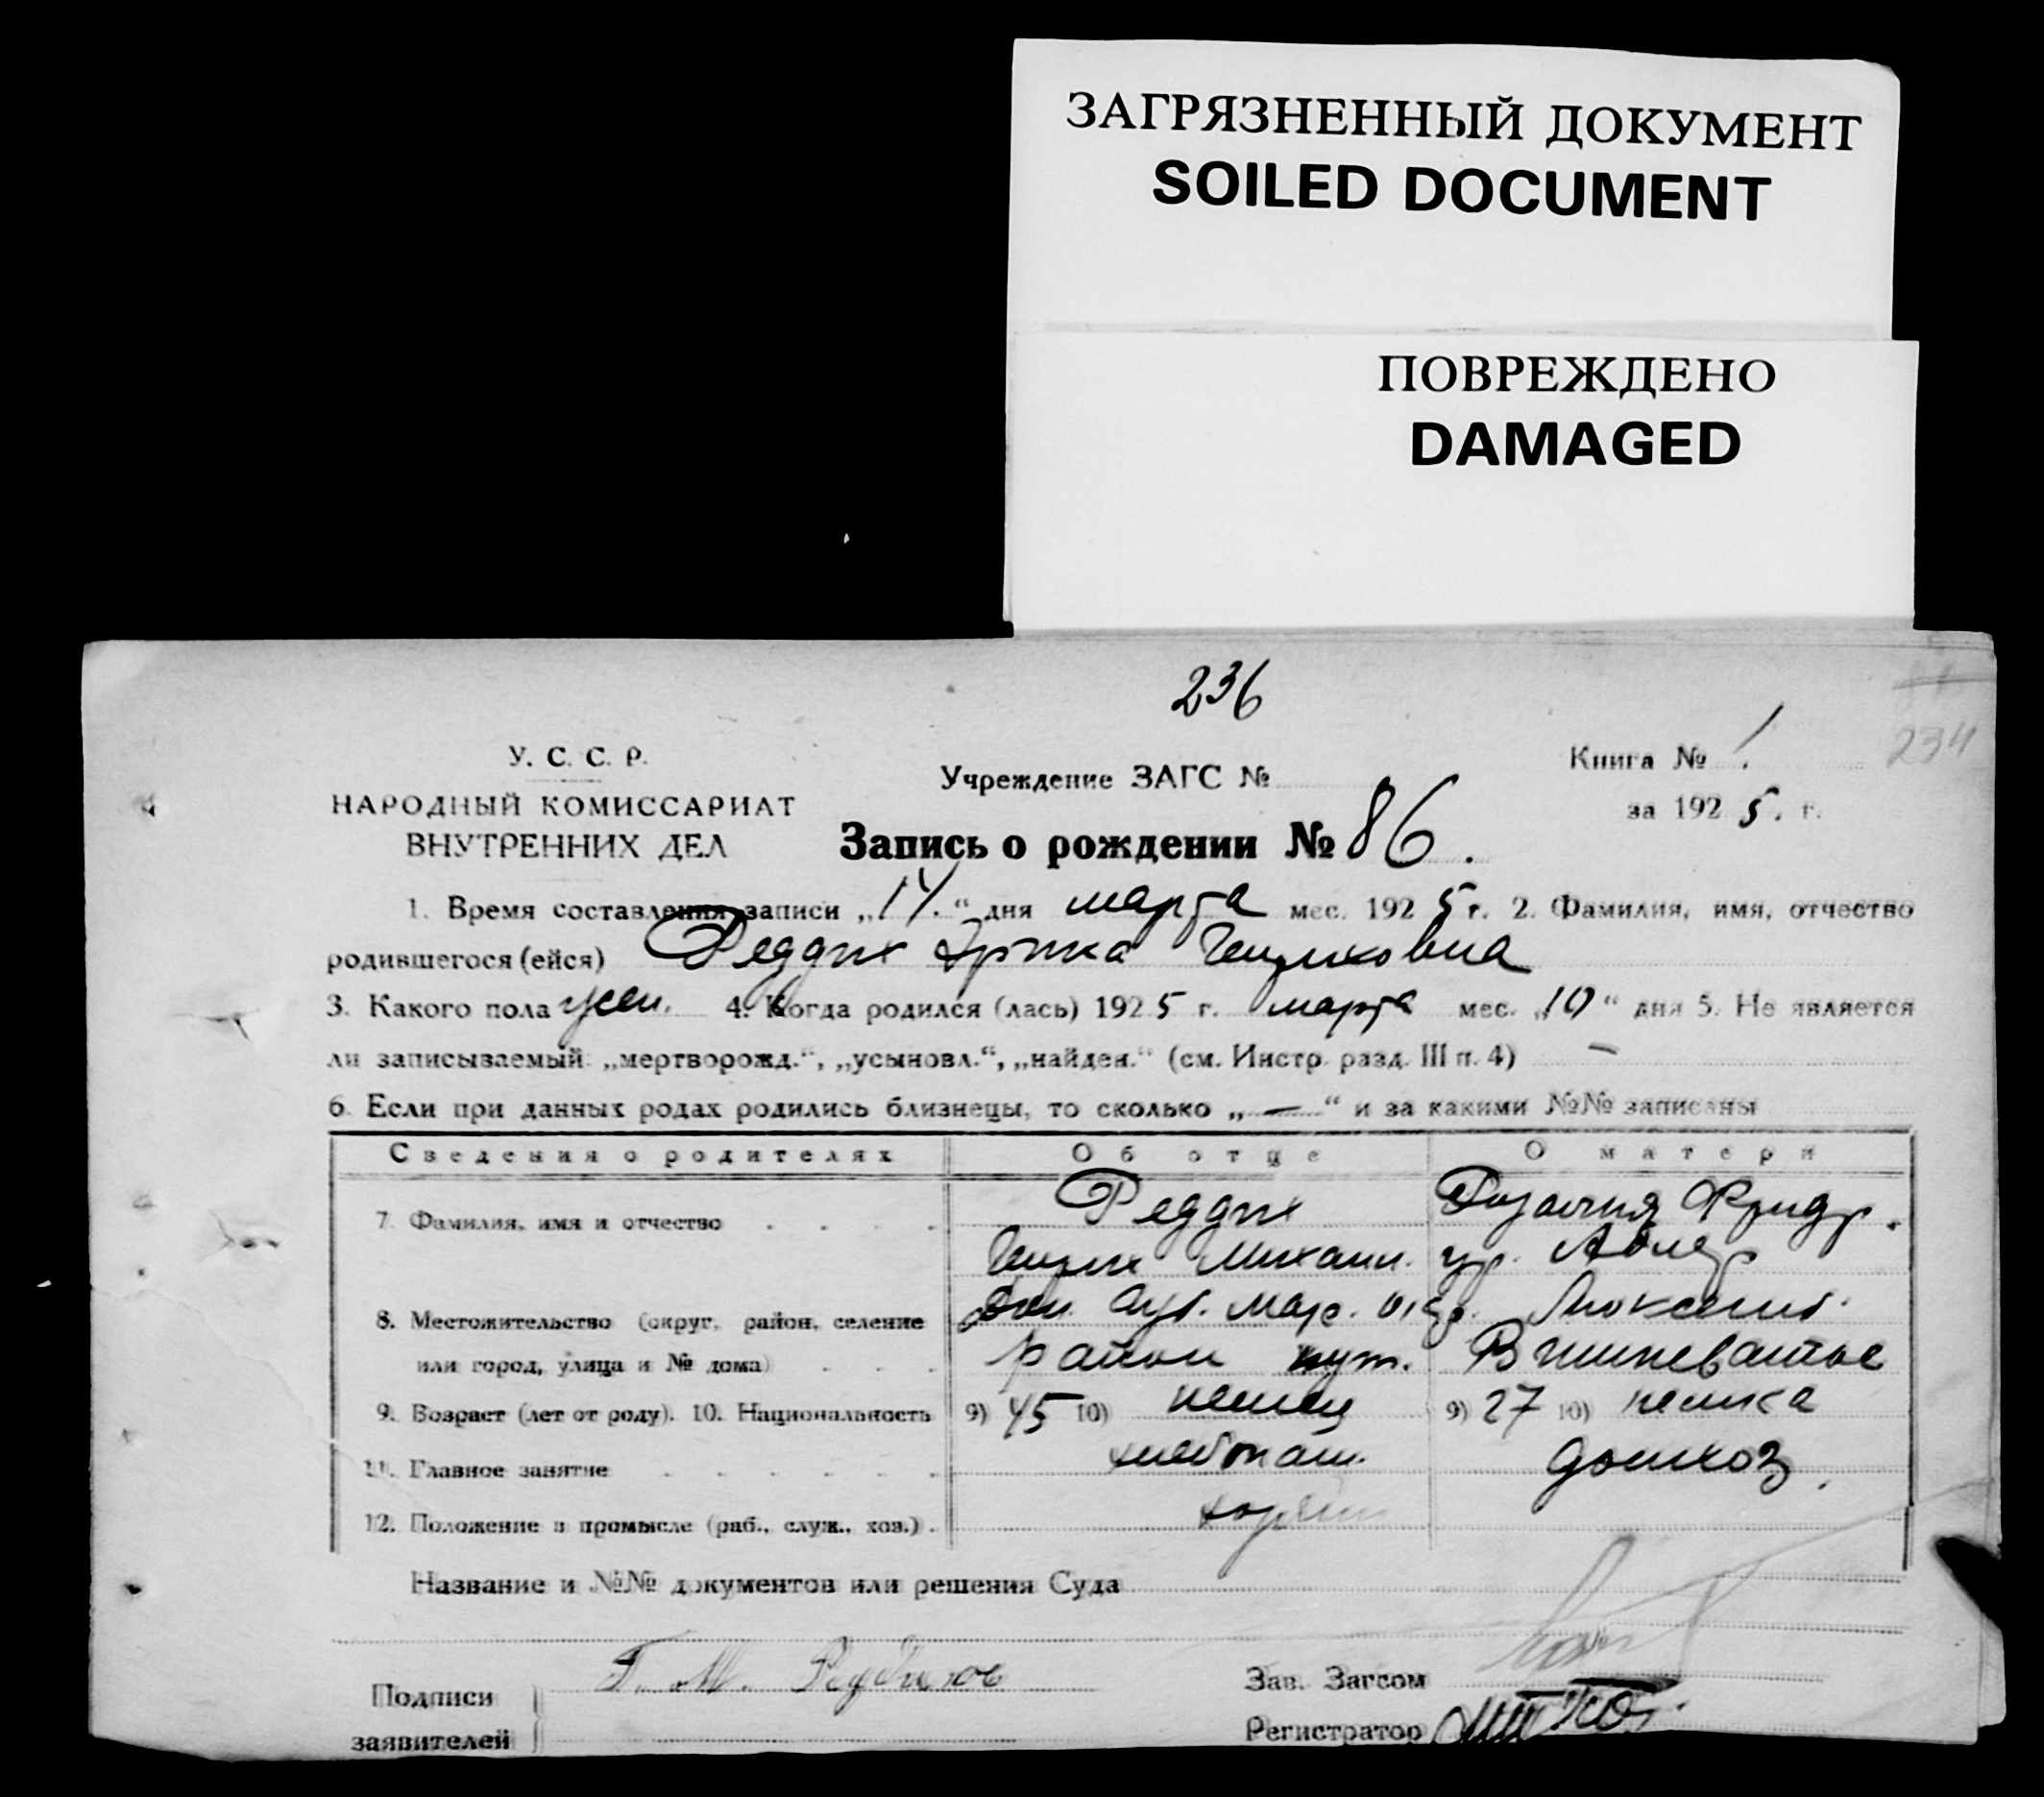 ЗАГРЯЗНЕННЫЙ ДОКУМЕНТ
SOILED DOCUMENT
ПОВРЕЖДЕНО
DAMAGED
236
234
У. С. С. Р.
НАРОДНЫЙ КОМИССАРИАТ
ВНУТРЕННИХ ДЕЛ
Учреждение ЗАГС №
Книга № 1
за 1925. г.
Запись о рождении № 86.
1. Время составления записи „14.“ дня марта мес. 1925 г. 2. Фамилия, имя, отчество
родившегося (ейся) Реддих Эрика Генриховна
3. Какого пола жен. 4. Когда родился (лась) 1925 г. марта мес. „10“ дня 5. Не является
ли записываемый „мертворожд.“, „усыновл.“, „найден.“ (см. Инстр. разд. III п. 4) —
6. Если при данных родах родились близнецы, то сколько „—“ и за какими №№ записаны
Сведения о родителях Об отце О матери
7. Фамилия, имя и отчество Реддих Розалия Фридр.
Генрих Михаил. ур. Адлер
8. Местожительство (округ, район, селение
или город, улица и № дома) район хут.
9. Возраст (лет от роду). 10. Национальность 9) 45 10) немец 9) 27 10) немка
11. Главное занятие хлебопаш. домхоз.
12. Положение в промысле (раб., служ., хоз.) хозяин
Название и №№ документов или решения Суда
Подписи
заявителей
Г. М.
Зав. Загсом
Регистратор